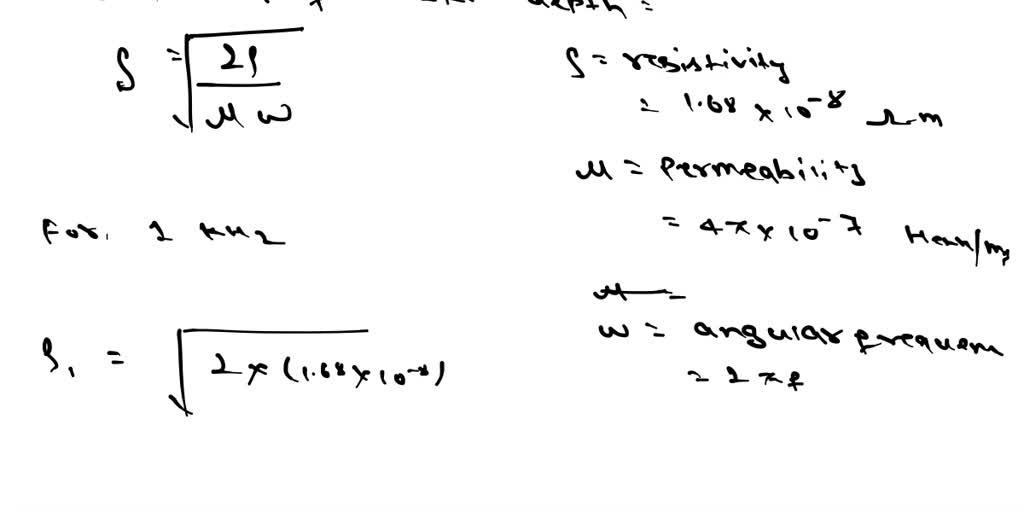 depth =
δ = √(2ρ / μ ω)
ρ = resistivity
= 1.68 × 10⁻⁸ Ω-m
μ = Permeability
= 4π × 10⁻⁷ Henn/m
For, 1 KHz
μ =
ω = angular frequen
= 2πf
δ₁ = √(2 × (1.68 × 10⁻⁸)